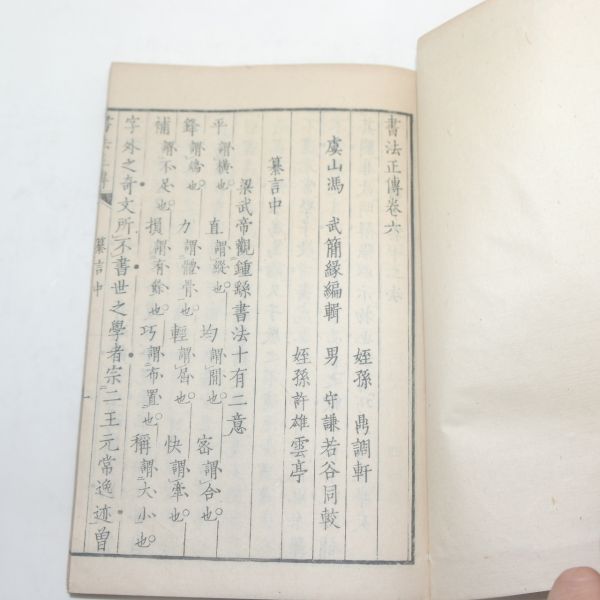 書法正傳卷六
姪孫 鼎調軒
虞山馮 武簡緣編輯 男 守謙若谷同較
姪孫許雄雲亭
纂言中
梁武帝觀鍾繇書法十有二意
平謂橫也。 直謂縱也。 均謂間也。 密謂合也。
鋒謂端也。 力謂體骨也。 輕謂屈也。 快謂牽也。
補謂不足也。 損謂有餘也。 巧謂布置也。 稱謂大小也。
字外之奇文所不書世之學者宗二王元常逸迹曾
書法正傳
纂言中
一